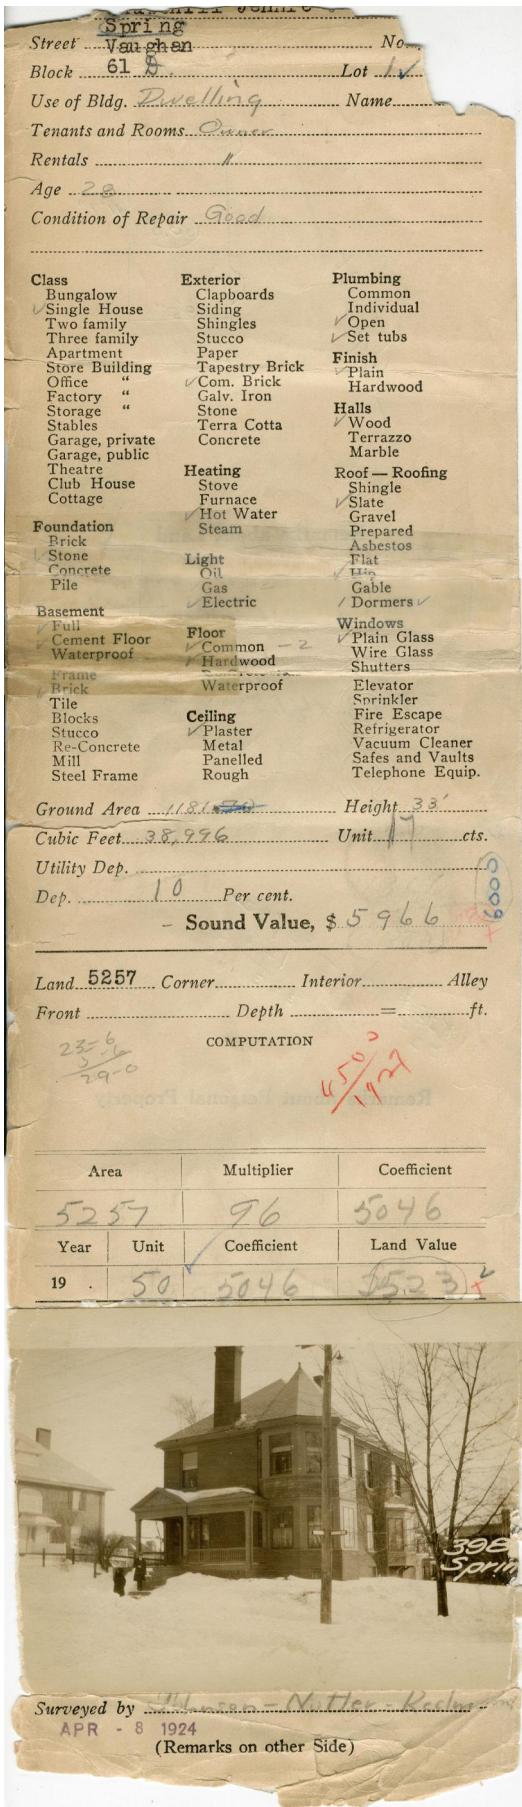 Spring
Street Vaughan No.
Block 61 D. Lot 1
Use of Bldg. Dwelling Name
Tenants and Rooms Owner
Rentals "
Age 28
Condition of Repair Good
Class
Bungalow
Single House
Two family
Three family
Apartment
Store Building
Office "
Factory "
Storage "
Stables
Garage, private
Garage, public
Theatre
Club House
Cottage
Foundation
Brick
Stone
Concrete
Pile
Basement
Full
Cement Floor
Waterproof
Frame
Brick
Tile
Blocks
Stucco
Re-Concrete
Mill
Steel Frame
Exterior
Clapboards
Siding
Shingles
Stucco
Paper
Tapestry Brick
Com. Brick
Galv. Iron
Stone
Terra Cotta
Concrete
Heating
Stove
Furnace
Hot Water
Steam
Light
Oil
Gas
Electric
Floor
Common - 2
Hardwood
Waterproof
Ceiling
Plaster
Metal
Panelled
Rough
Plumbing
Common
Individual
Open
Set tubs
Finish
Plain
Hardwood
Halls
Wood
Terrazzo
Marble
Roof — Roofing
Shingle
Slate
Gravel
Prepared
Asbestos
Flat
Hip
Gable
Dormers
Windows
Plain Glass
Wire Glass
Shutters
Elevator
Sprinkler
Fire Escape
Refrigerator
Vacuum Cleaner
Safes and Vaults
Telephone Equip.
Ground Area 1181 Height 33'
Cubic Feet 38,996 Unit 17 cts.
Utility Dep.
Dep. 10 Per cent.
6000
Sound Value, $ 5966
Land 5257 Corner Interior Alley
Front Depth = ft.
COMPUTATION
23-6
29-0
4500
1927
Area Multiplier Coefficient
5257 96 5046
Year Unit Coefficient Land Value
19 . 50 5046 2523
398
Sprin
Surveyed by Johnson - Nutter -
APR - 8 1924
(Remarks on other Side)